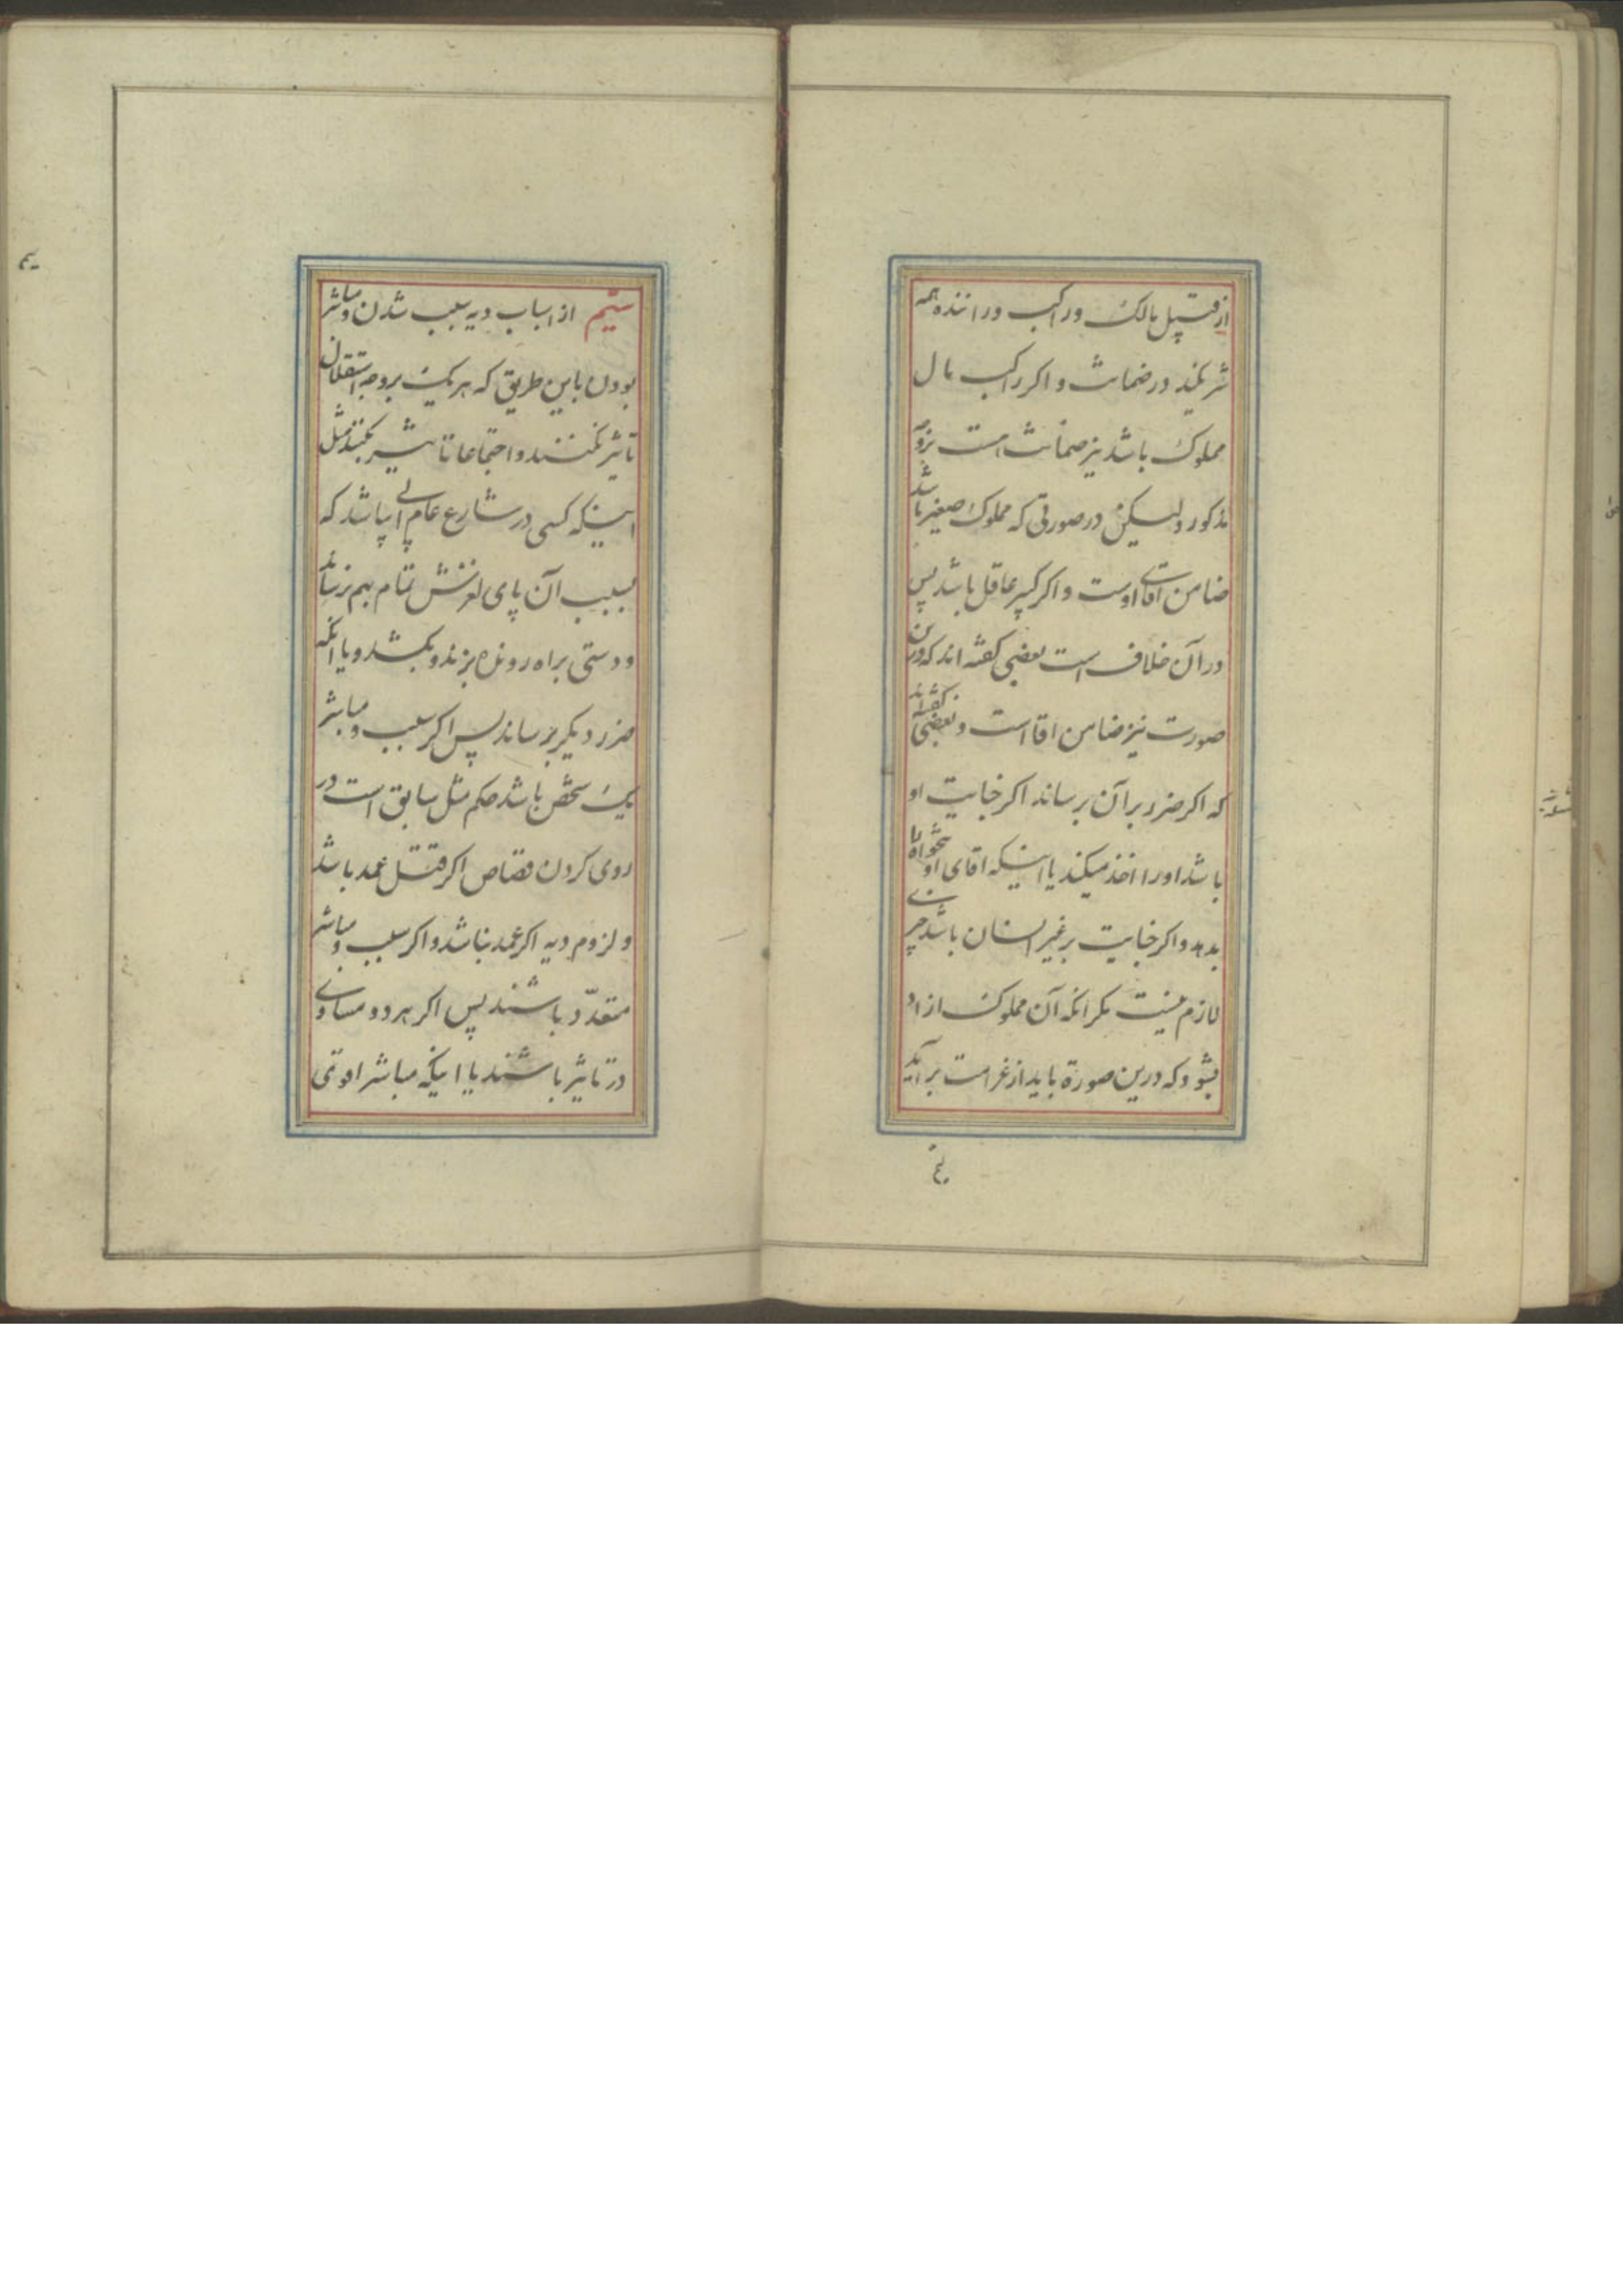 از قبیل مالک و راکب و راننده همه
شریکند در ضمانت و اکر راکب مال
مملوک باشد نیز ضمانت است بروجه
مذکور ولیکن در صورتی که مملوک صغیر باشد
ضامن اقای اوست و اکر کبیر عاقل باشد پس
در آن خلاف است بعضی کفته اند که درین
صورت نیز ضامن اقا است و بعضی کفته اند
که اکر ضرر بر آن برساند اکر جنایت او
باشد او را اخذ میکند یا اینکه اقای او
بدهد و اکر جنایت بر غیر انسان باشد چیزی
لازم نیست مکر انکه آن مملوک ازاد
بشود که درین صورة باید از غرامت برآید
ششم از اسباب دیه سبب شدن و مباشر
بودن باین طریق که هر یک بروجه استقلال
تاثیر نکنند و اجتماعا تاثیر بکنند مثل
اینکه کسی در شارع عام ابی پاشد که
بسبب آن پای لغزش تمام بهم رساند
و دستی براه رونده بزند و بکشد و یا انکه
ضرر دیکر برساند پس اکر سبب و مباشر
یک شخص باشد حکم مثل سابق است در
روی کردن قصاص اکر قتل عمد باشد
و لزوم دیه اکر عمد نباشد و اکر سبب و مباشر
متعدّد باشند پس اکر هر دو مساوی
در تاثیر باشند یا اینکه مباشر اقوی